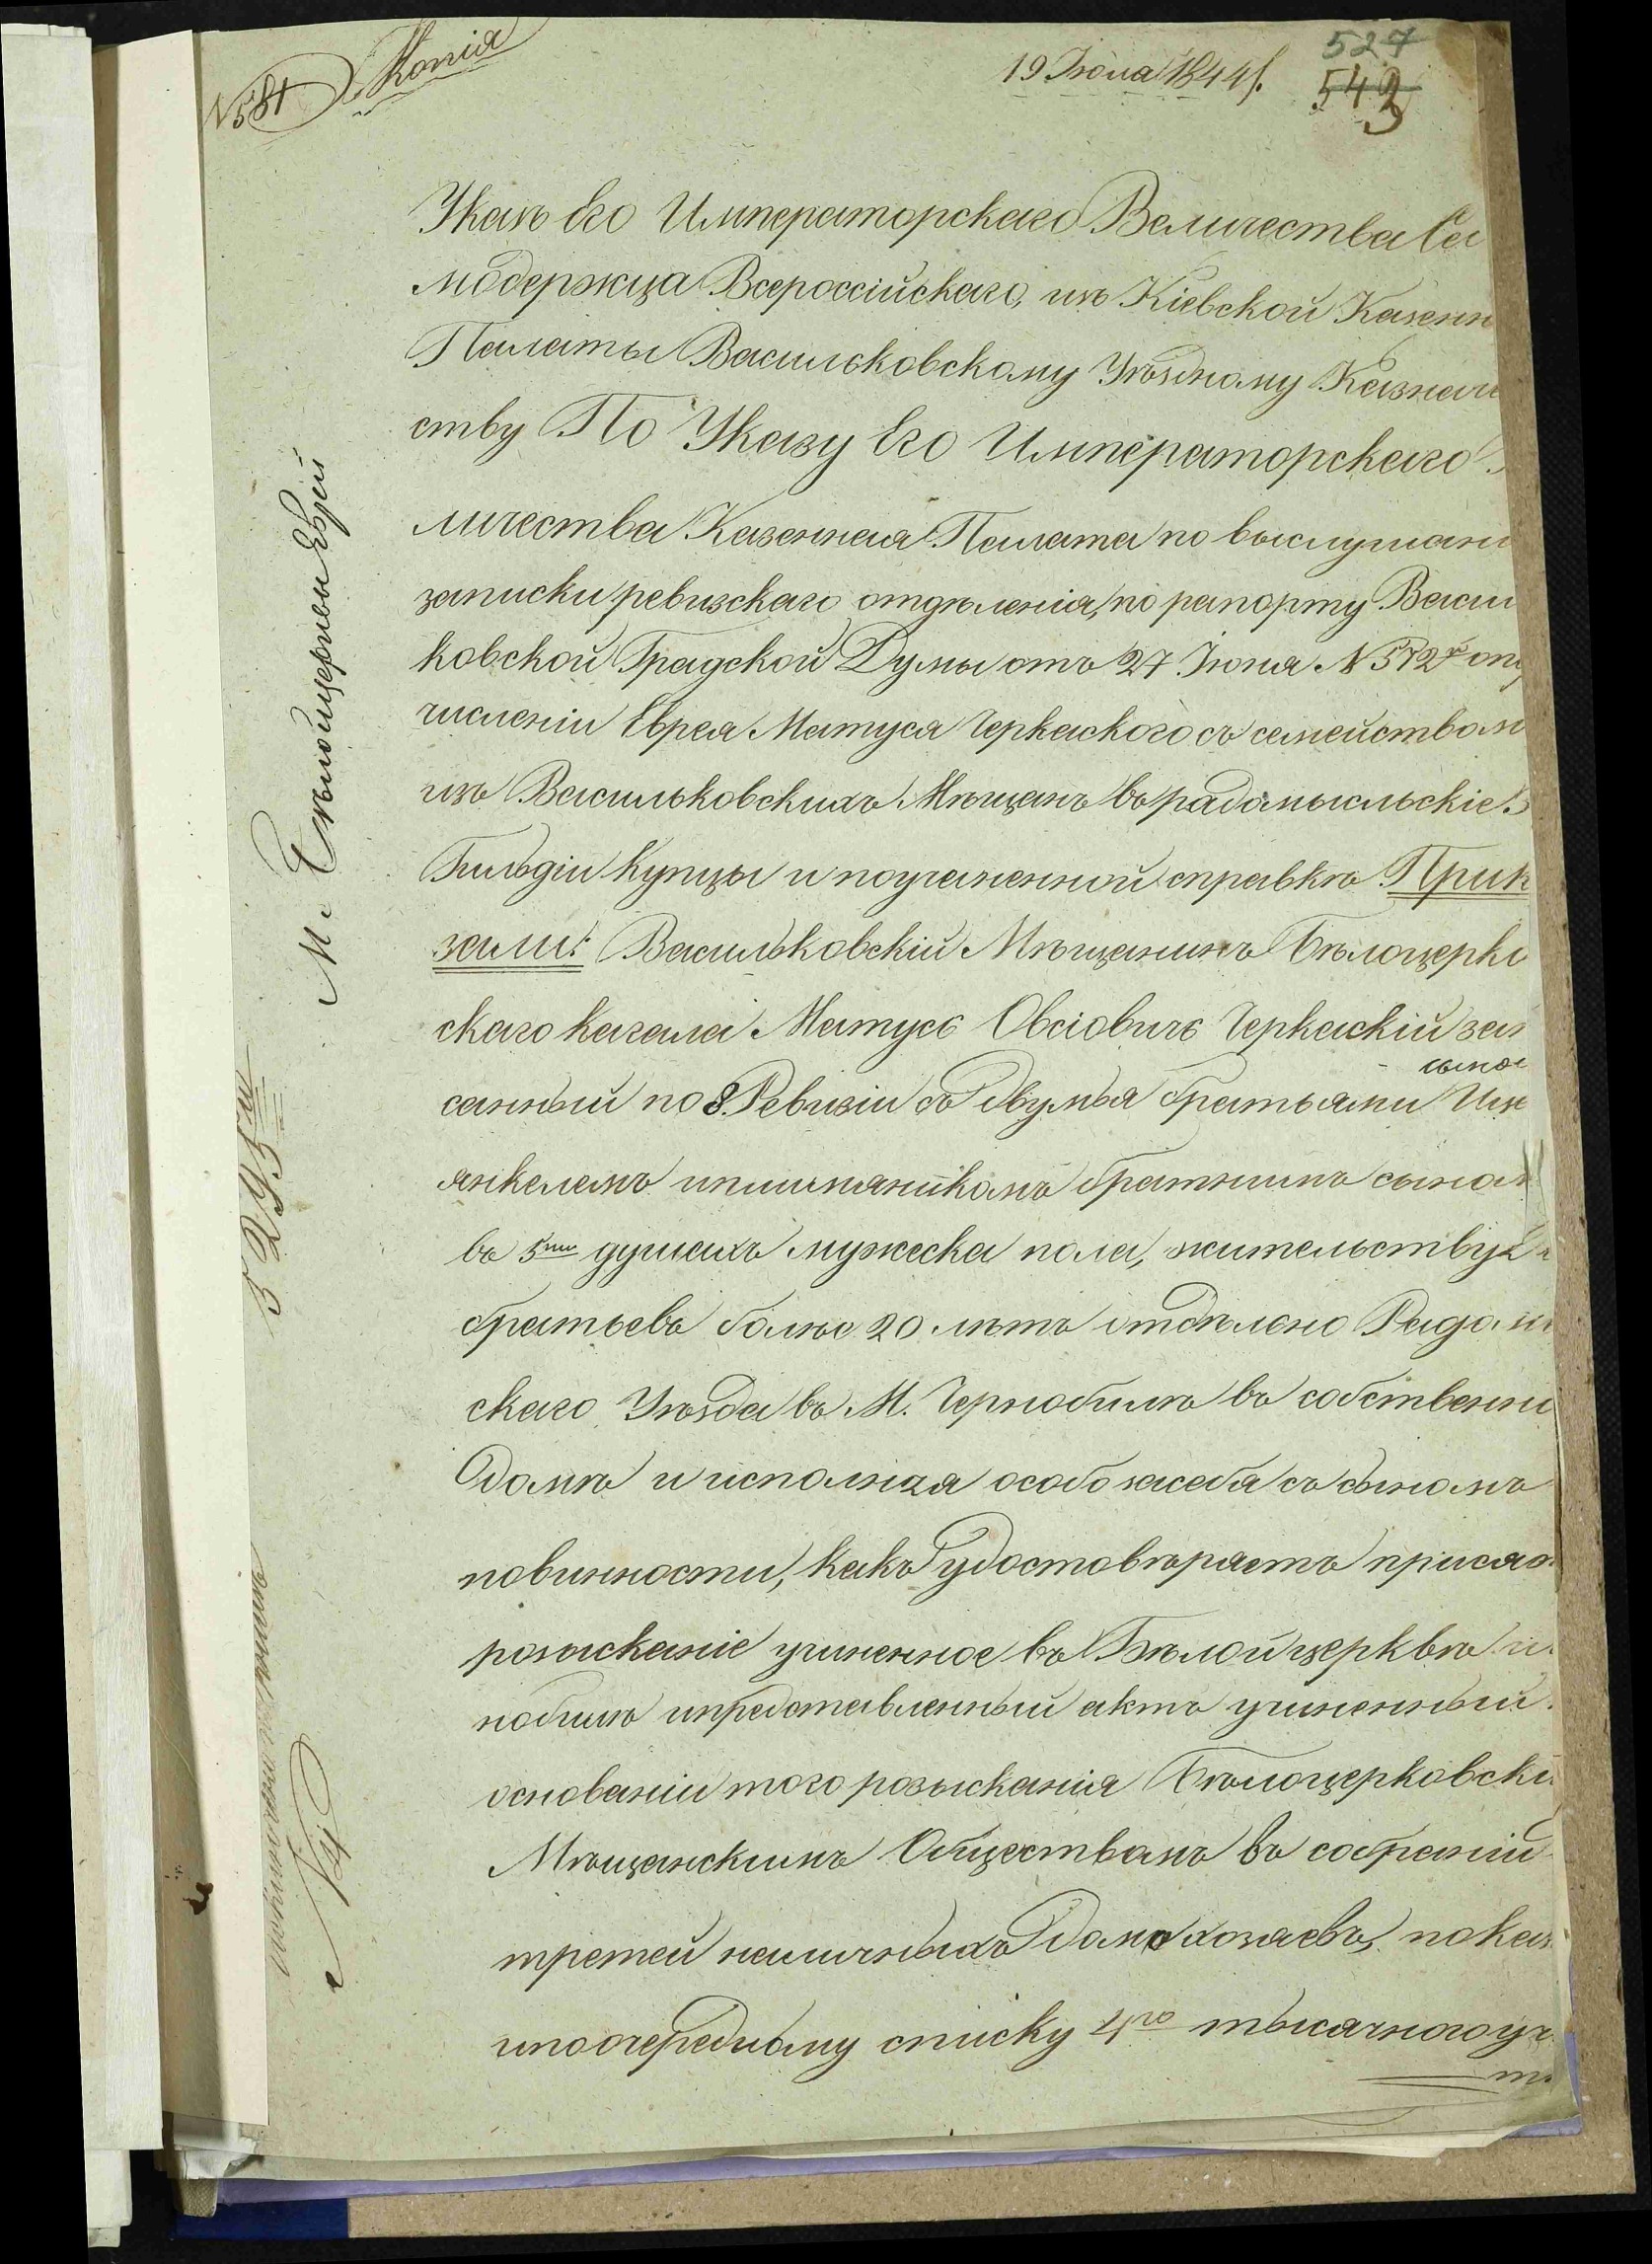 № 581
Копія
19 Июля 1844 г.
527
543
Указъ Его Императорскаго Величества Са
модержца Всероссійскаго, изъ Кіевской Казенн
Палаты Васильковскому Уѣздному Казначе
ству По Указу Его Императорскаго
личества Казенная Палата по выслушани
записки ревизскаго отдѣленія, по рапорту Васил
ковской Градской Думы отъ 27 Іюня №
численіи Еврея Матуся Черкаского съ семействомъ
изъ Васильковскихъ Мѣщанъ въ радомысльскіе 3
Гильдіи Купцы и поучиненной справкѣ Прик
зали: Васильковскій Мѣщанинъ Бѣлоцерко
скаго кагала Матусь Овсіовичъ Черкаскій зап
сынов
санный по 8 Ревизіи съ двумья братьями
янкелемъ иплимяникомъ братнимъ сыном
въ 5ти душахъ мужеска пола, жительству
братьевъ болѣе 20 лѣтъ отдѣлено Радом
скаго Уѣзда въ М. Чернобилѣ въ собственно
домѣ и исполняя особо засебя съ сыномъ
повинности, какъ удостовѣряетъ присяж
розысканіе учиненное въ Бѣлой церквѣ и
нобилѣ ипредставленный актъ учиненный
основаніи того розысканія Бѣлоцерковски
Мѣщанскимъ Обществомъ въ собраніи
третей наличныхъ домохозяевъ, по каз
ипоочередному списку 4го тысячного уч
т.
М. Бѣлойцерквы Еврей